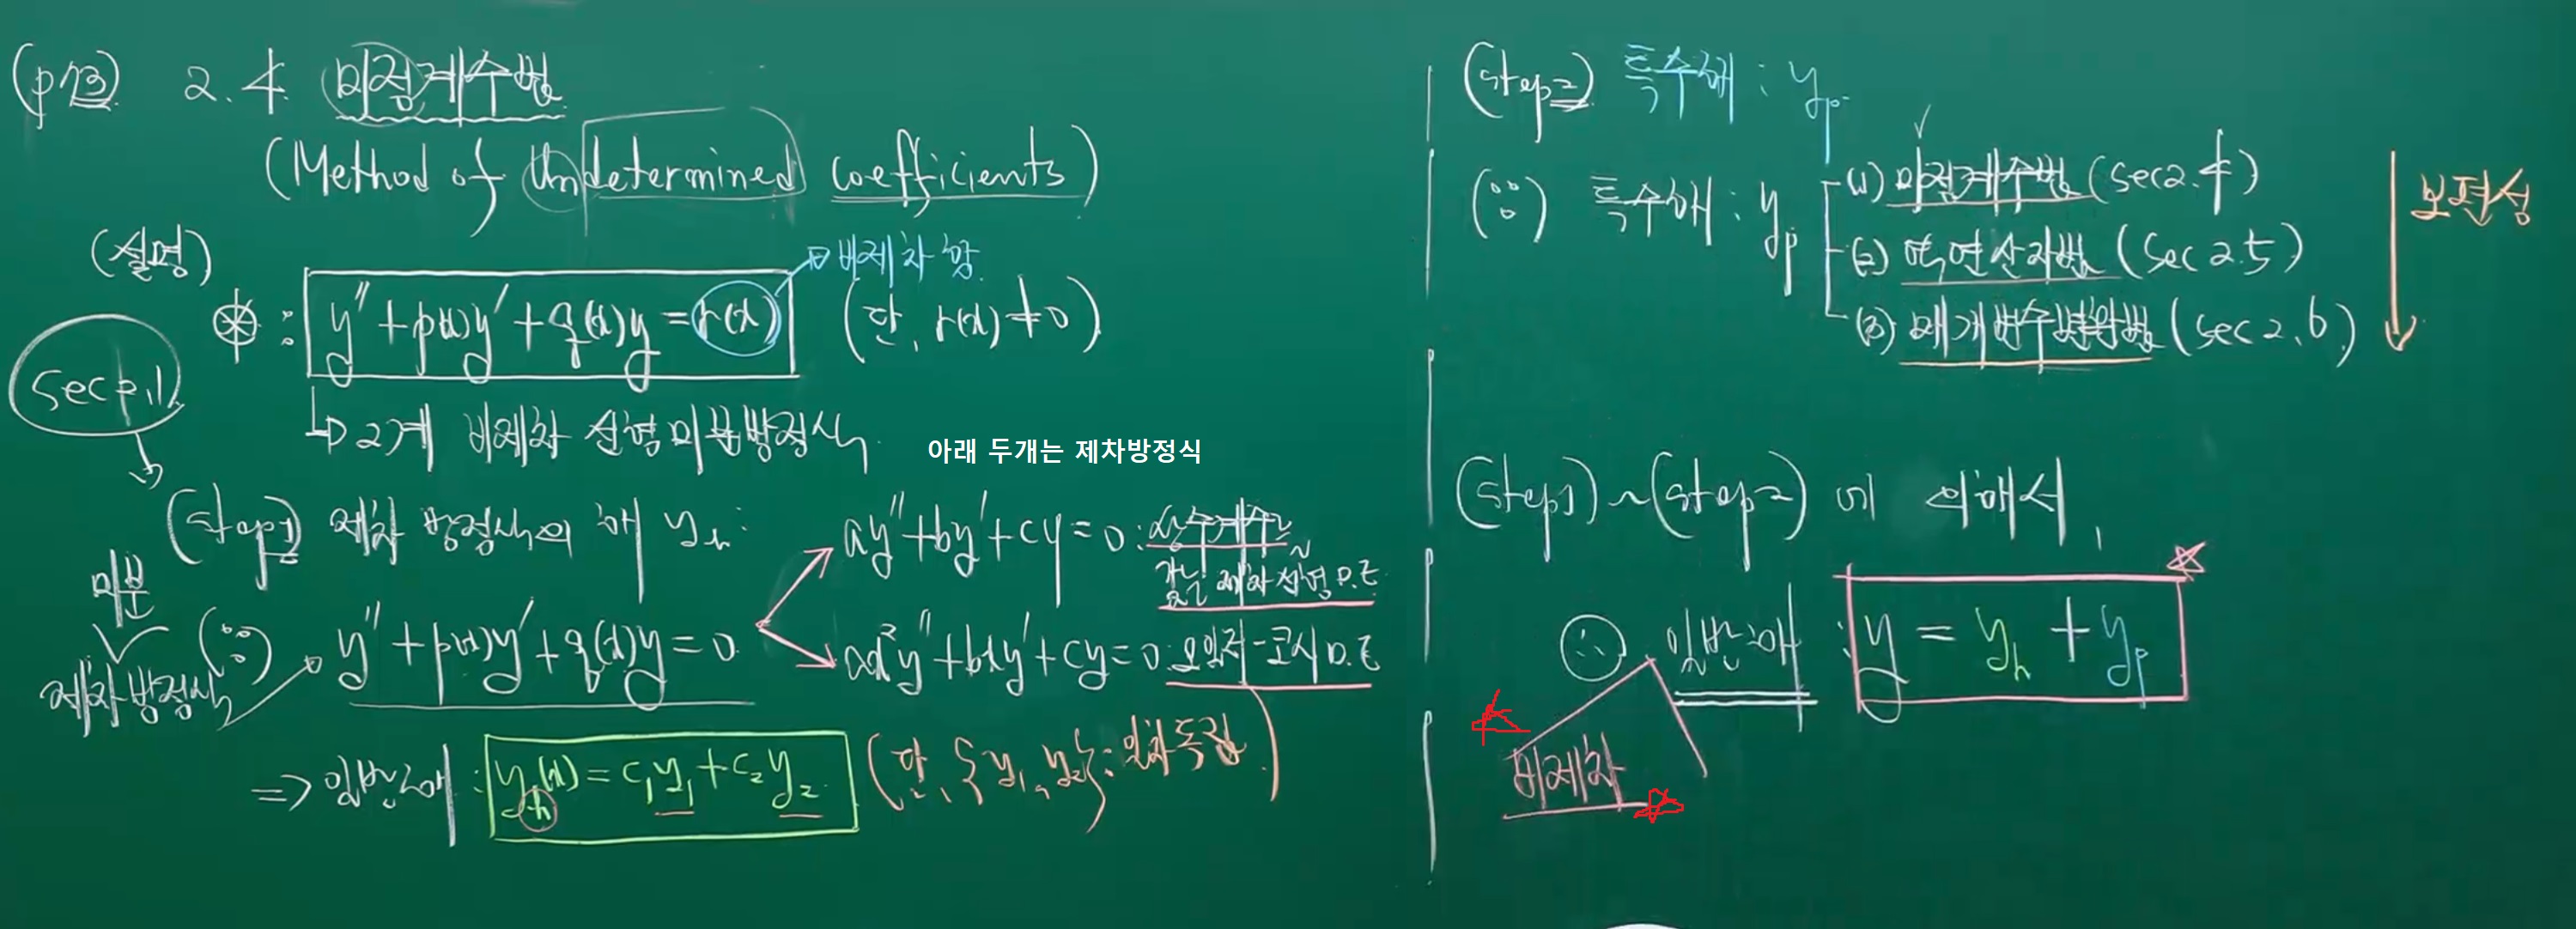 (p73) 2.4 미정계수법
(Method of Undetermined coefficients)
(설명)
비제차항
⊛ : y″ + p(x)y′ + q(x)y = r(x) (단, r(x) ≠ 0)
Sec 2.1
2계 비제차 선형미분방정식
아래 두개는 제차방정식
(step1) 제차 방정식의 해 y_h :
ay″ + by′ + cy = 0 : 상수계수를
갖는 제차 선형 D.E
미분
제차방정식
(∵) y″ + p(x)y′ + q(x)y = 0
ax²y″ + bxy′ + cy = 0 : 오일러-코시 D.E
⇒ 일반해 : y_h(x) = c₁y₁ + c₂y₂ (단, {y₁, y₂} : 일차독립)
(step2) 특수해 : y_p
(∵) 특수해 : y_p
(1) 미정계수법 (sec 2.4)
(2) 역연산자법 (sec 2.5)
(3) 매개변수변환법 (sec 2.6)
보편성
(step1) ~ (step2) 에 의해서,
∴ 일반해 : y = y_h + y_p
비제차